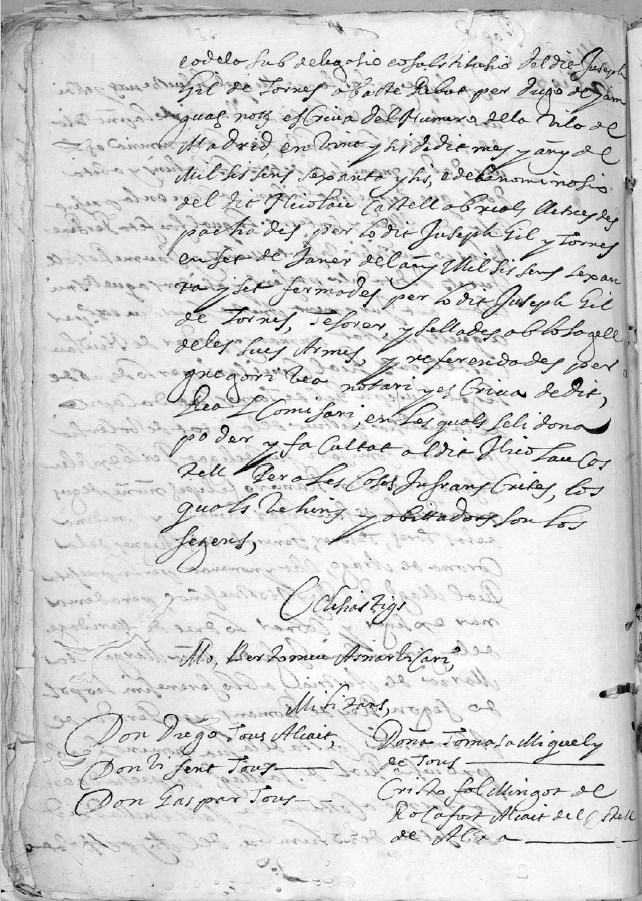 eo dela sub delegasio eo substitusio del dit Juseph
Gil de Torres abaste Rebut per Dugo de
notz escriva del Numero de la Vila de
Madrid en vint y sis de dit mes y any del
Mil sis sens sexanta y sis, e dela nominasio
del dit Nicolau Castell ab reals lletres des
pachades, per lo dit Juseph Gil y Torres
en set de Janer del any Mil sis sens sexan
ta y set fermades per lo dit Juseph Gil
de Torres, Tesorer, y sellades ab lo sagell
deles sues Armes, y referendades per
gregori vea notari y escriva de dit,
Real Comisari, en les quals seli dona
poder y facultat al dit Nicolau Cas
tell Per a les Coses Infranscrites, los
quals vehins y abittadors son los
segens,
Eclesiastigs
Mo, Bertomeu Asnar vicari,
Militars,
Don Diego Tous Alcait,
Don Visent Tous
Don Gaspar Tous
Doña Tomasa Miquel y
de Tous
Cristofol Mingot de
Rocafort Alcait del Castell
de